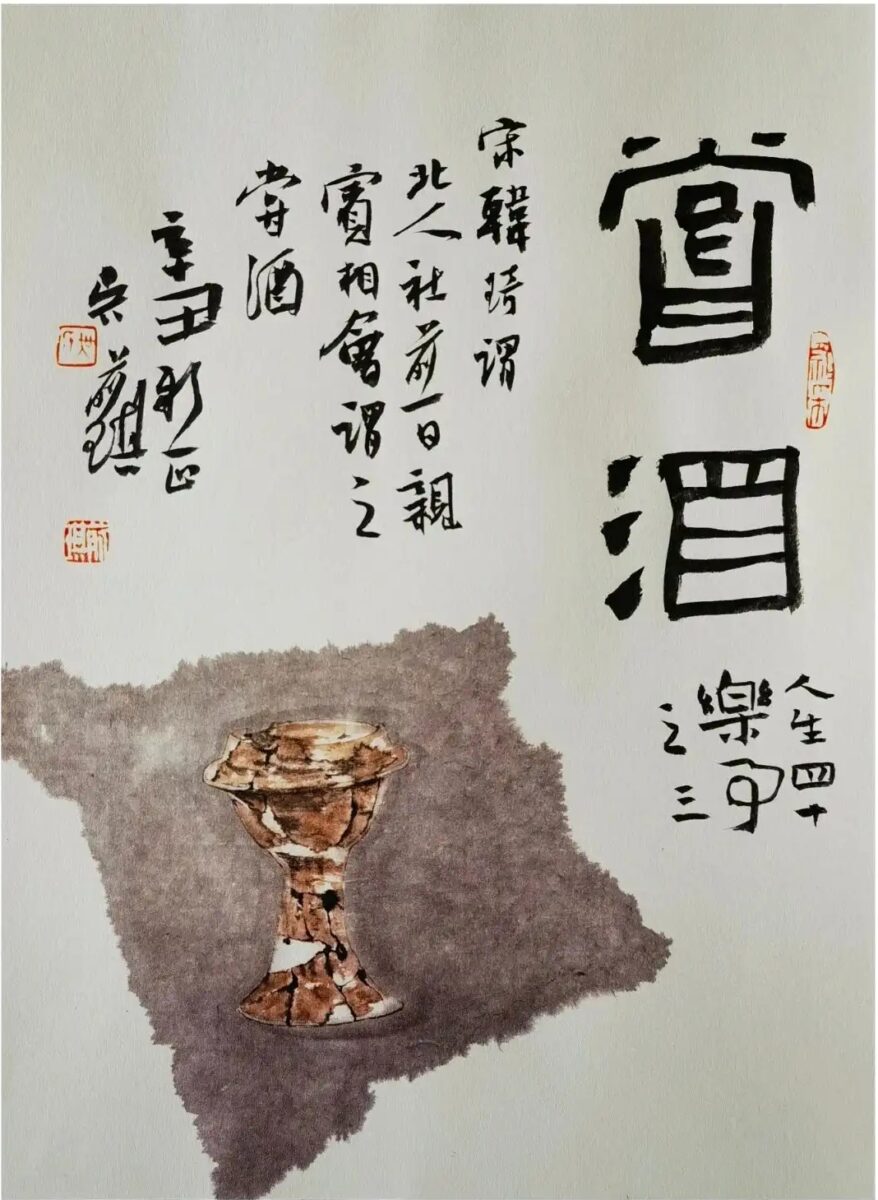 嘗酒
人生四十
樂事
之三
宋韓琦謂
北人社前一日親
賓相會謂之
甞酒
辛丑新正